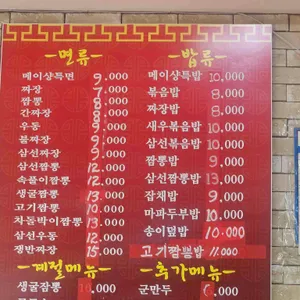 면류
메이샹특면 9.000
짜장 7.000
짬뽕 8.000
간짜장 8.000
우동 9.000
볼짜장 9.000
삼선짜장 9.000
삼선짬뽕 12.000
속풀이짬뽕 12.000
생굴짬뽕 13.000
고기짬뽕 10.000
차돌박이짬뽕 13.000
삼선우동 12.000
쟁반짜장 15.000
계절메뉴
생굴짬뽕 10.000
밥류
메이샹특밥 10.000
볶음밥 8.000
짜장밥 8.000
새우볶음밥 10.000
삼선볶음밥 10.000
짬뽕밥 9.000
삼선짬뽕밥 13.000
잡채밥 9.000
마파두부밥 10.000
송이덮밥 10.000
고기짬뽕밥 11.000
추가메뉴
군만두 6.000